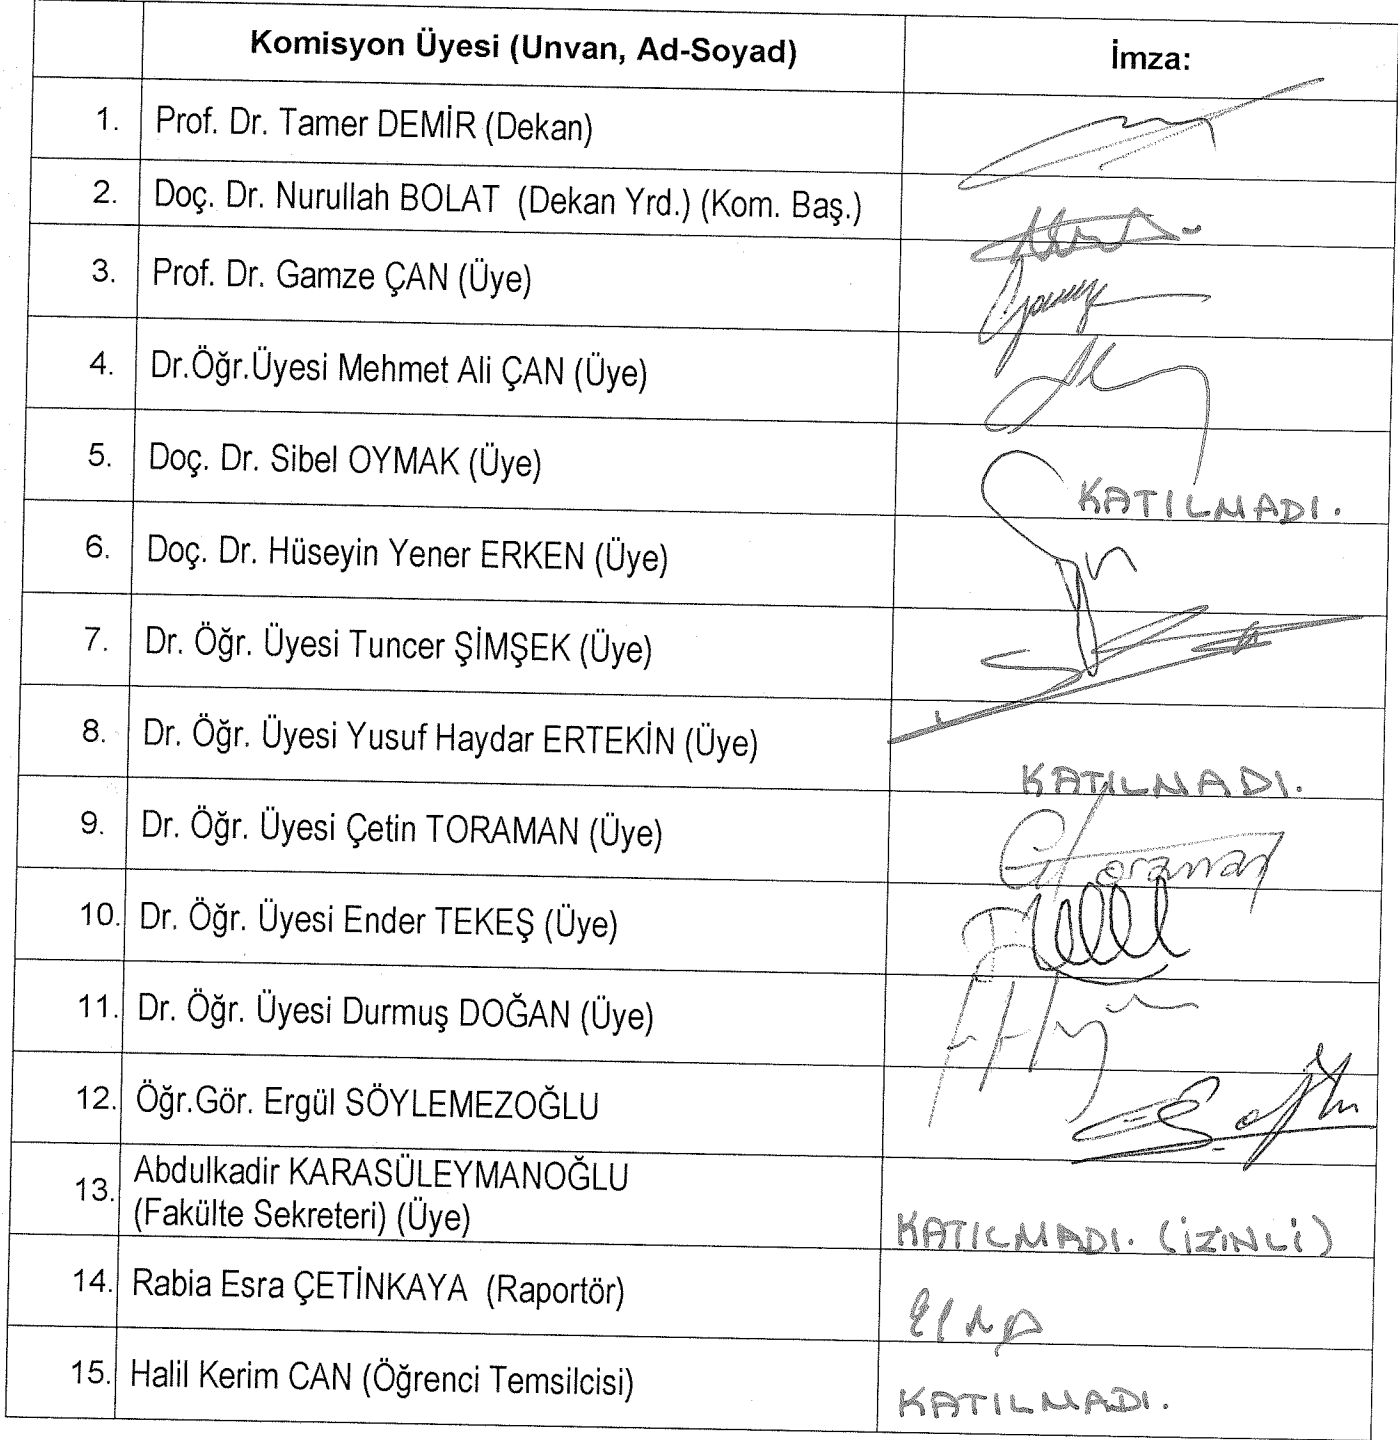 Komisyon Üyesi (Unvan, Ad-Soyad) İmza:
1. Prof. Dr. Tamer DEMİR (Dekan)
2. Doç. Dr. Nurullah BOLAT (Dekan Yrd.) (Kom. Baş.)
3. Prof. Dr. Gamze ÇAN (Üye)
4. Dr.Öğr.Üyesi Mehmet Ali ÇAN (Üye)
5. Doç. Dr. Sibel OYMAK (Üye) KATILMADI.
6. Doç. Dr. Hüseyin Yener ERKEN (Üye)
7. Dr. Öğr. Üyesi Tuncer ŞİMŞEK (Üye)
8. Dr. Öğr. Üyesi Yusuf Haydar ERTEKİN (Üye) KATILMADI.
9. Dr. Öğr. Üyesi Çetin TORAMAN (Üye)
10. Dr. Öğr. Üyesi Ender TEKEŞ (Üye)
11. Dr. Öğr. Üyesi Durmuş DOĞAN (Üye)
12. Öğr.Gör. Ergül SÖYLEMEZOĞLU
13. Abdulkadir KARASÜLEYMANOĞLU
(Fakülte Sekreteri) (Üye) KATILMADI. (İZİNLİ)
14. Rabia Esra ÇETİNKAYA (Raportör)
15. Halil Kerim CAN (Öğrenci Temsilcisi) KATILMADI.